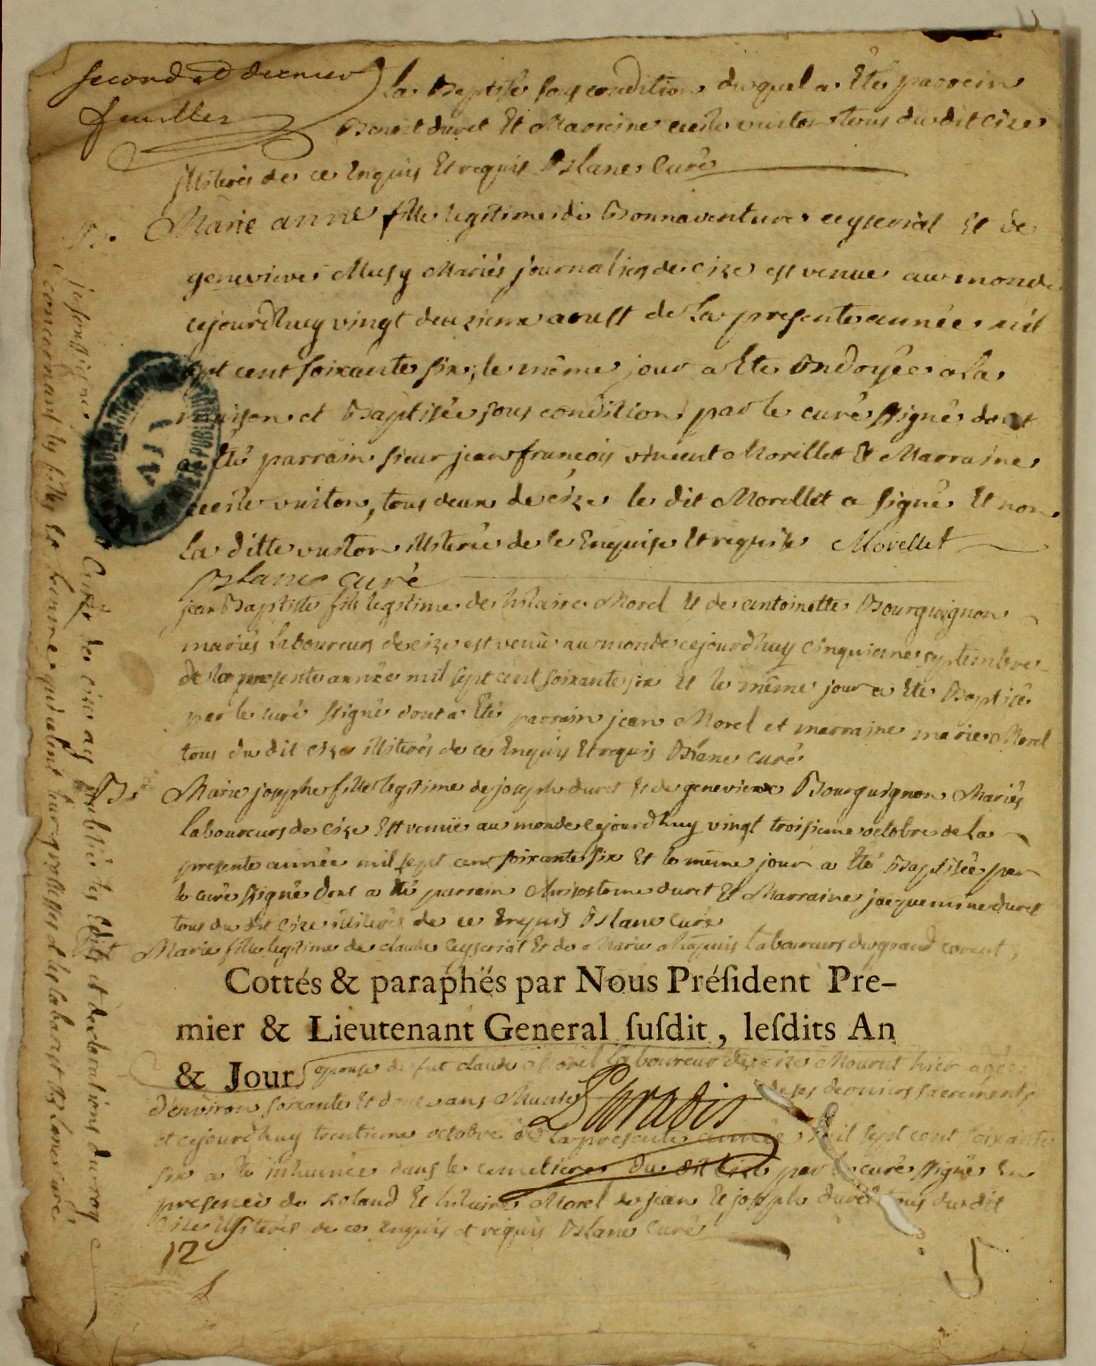 second et dernier
feuillet
la Baptisé sous condition duquel a Eté parrein
Benoit duret Et Marreine tous du dit Cize
illiterés de ce Enquis Et requis Blanc Curé
B.
Marie anne fille legitime de Bonnaventure ceyseriat Et de
genevieve Musy Mariés journaliers de cize est venue au monde
cejourdhuy vingt deuxieme aoust de La presente année mil
sept cent soixante six, le même jour a Eté Ondoyée a La
maison et Baptisée sous condition par le curé ssigné dont
a Eté parrain sieur jean francois vincent Morellet Et Marraine
tous deux de cize le dit Morellet a signé Et non
La ditte illiterée de ce Enquise Et requise Morellet
Blanc curé
jean Baptiste fils legitime de hilaire Morel Et de antoinette Bourguignon
mariés Laboureurs de cize est venu au monde cejourdhuy cinquieme septembre
de la presente année mil sept cent soixante six Et le même jour a Eté Baptisé
par le curé ssigné dont a Eté parrain jean Morel et marraine marie Morel
tous du dit cize illiterés de ce Enquis Et requis Blanc curé
B.
Marie josephe fille legitime de joseph duret Et de genevieve Bourguignon Mariés
laboureurs de cize Est venüe au monde cejourdhuy vingt troisieme octobre de La
presente année mil sept cent soixante six Et le même jour a Eté Baptisée par
le curé ssigné dont a Eté parrein Chrisostome duret Et Marraine jacquemine duret
tous du dit Cize illiterés de ce Enquis Blanc Curé
Marie fille legitime de claude Ceyseriat Et de Marie laboureurs du grand corent,
Cottés & paraphés par Nous Préſident Pre-
mier & Lieutenant General ſuſdit, leſdits An
& Jour
epouse de fut claude Morel laboureur de cize Mourut hier agée
d'environ soixante Et douze ans Munie de ses derniers sacrements
et cejourdhuy trentieme octobre de La presente année mil sept cent soixante
six a Eté inhumée dans le cemetiere du dit Cize par le curé ssigné En
presence de Roland Et hilaire Morel de jean Et joseph duret tous du dit
Cize illiterés de ce enquis et requis Blanc Curé
12
5
je soussigné Curé de cize ay publié les Edits et declarations du roy
concernant les filles Et femmes qui celent leur grossesses Et Blanc curé
AIN